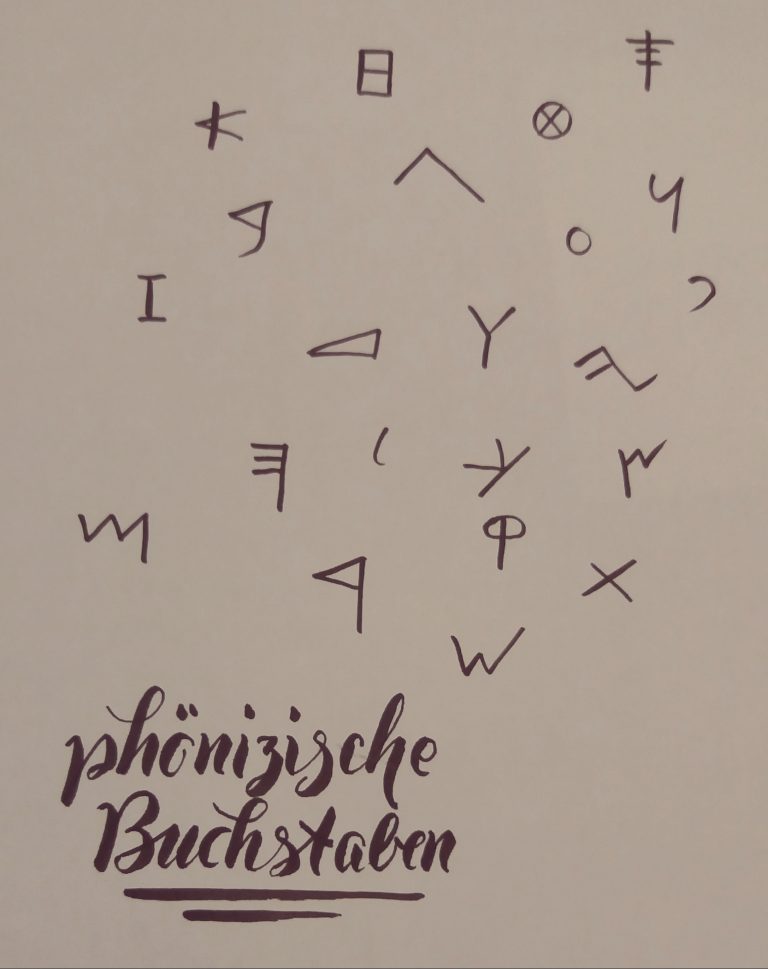 𐤇
𐤎
𐤀
𐤈
𐤂
𐤍
𐤁
𐤏
𐤆
𐤐
𐤃
𐤅
𐤉
𐤄
𐤋
𐤊
𐤑
𐤌
𐤒
𐤓
𐤕
𐤔
phönizische
Buchstaben